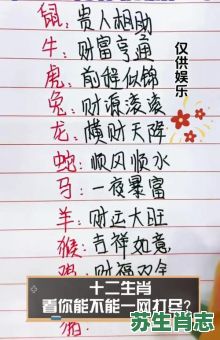 鼠：贵人相助
牛：财富亨通
虎：前程似锦
兔：财源滚滚
龙：横财天降
蛇：顺风顺水
马：一夜暴富
羊：财正大旺
猴：吉祥如意
鸡：财福双全
仅供娱乐
十二生肖
看你能不能一网打尽？
苏生肖志